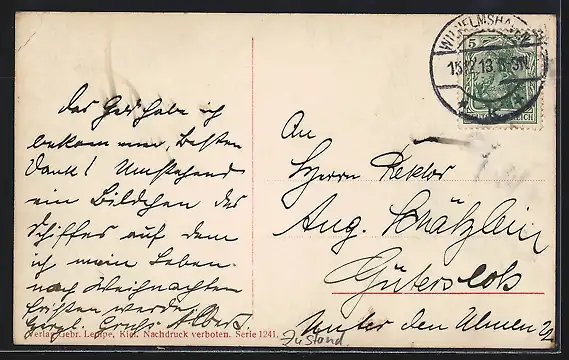 Das Geld habe ich
bekommen, Besten
Dank! Umstehend
ein Bildchen des
Schiffes auf dem
ich mein Leben
nach Weihnachten
fristen werde.
Herzl. Gruß Albert.
An
Herrn Rektor
Aug. Schätzlein
Gütersloh
Unter den Ulmen 22
WILHELMSHAVEN
15.12.13 6-7N
5
Verlag Gebr. Lempe, Kiel. Nachdruck verboten. Serie 1241.
Zustand